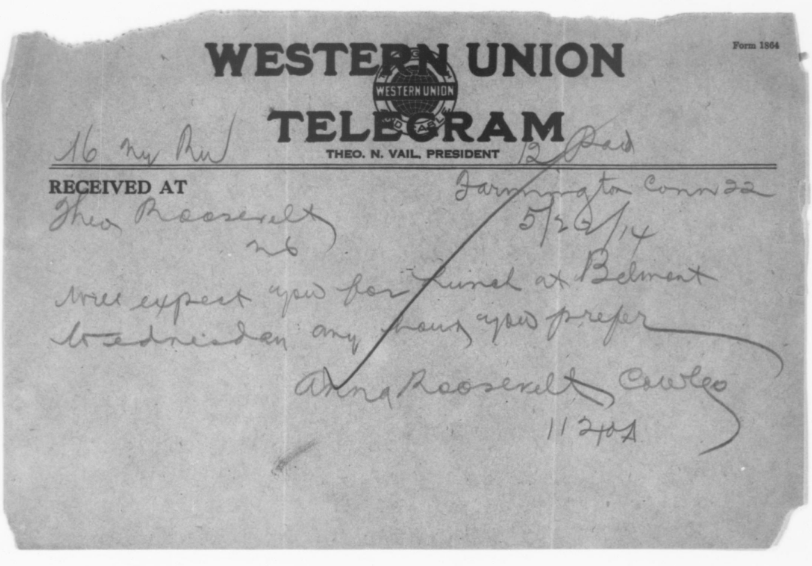 Form 1864
WESTERN UNION
WESTERN UNION
TELEGRAM
THEO. N. VAIL, PRESIDENT
16 Ny 12 Paid
RECEIVED AT
Farmington Conn 22
Theo Roosevelt
5/22/14
Will expect you for lunch at Belmont
Wednesday any hour you prefer
Anna Roosevelt Cowles